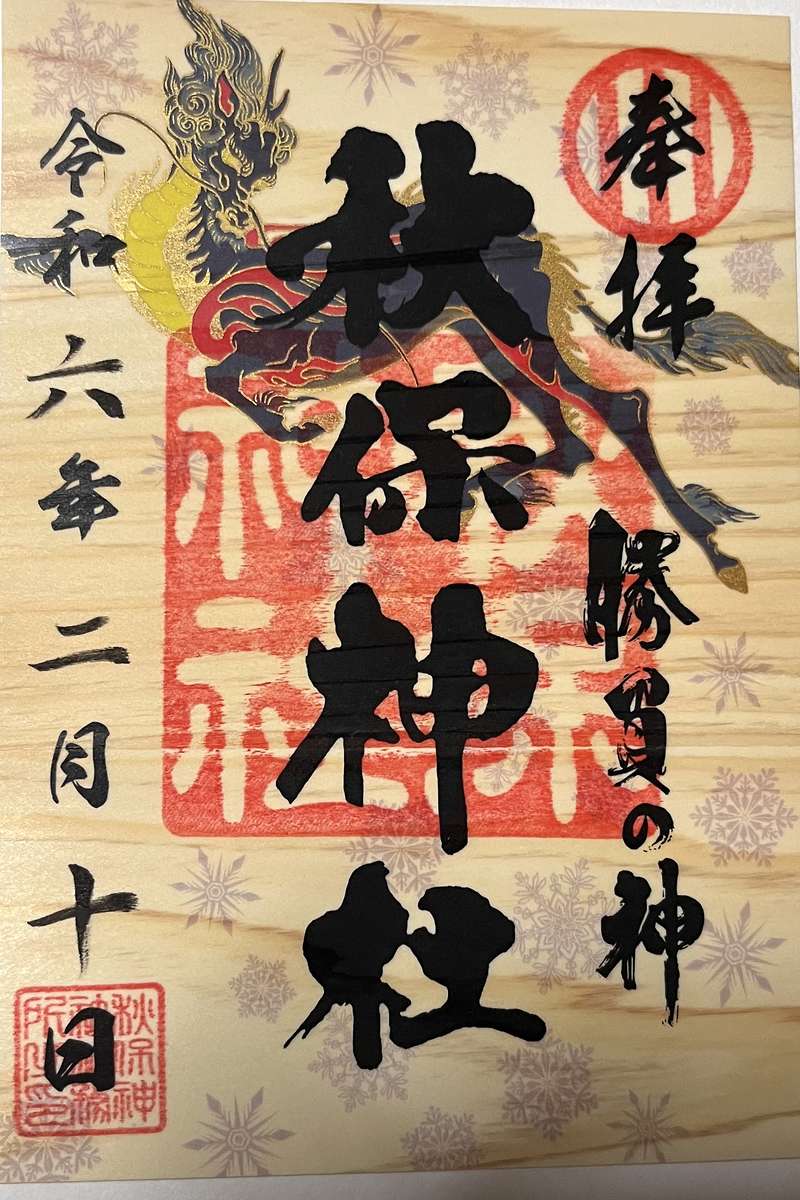 奉拝
勝負の神
秋保神社
令和六年二月十日
秋保神
社務
所之印